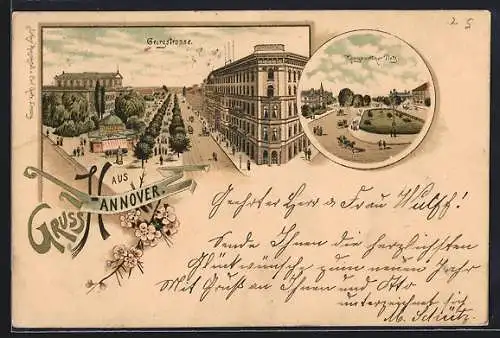 Georgstrasse.
2 5
GRUSS
AUS
HANNOVER.
Geehrter Herr & Frau Wulff!
Sende Ihnen die herzlichsten
Glückwünsche zum neuen Jahr
Mit Gruß an Ihnen und Otto
unterzeichnet sich
M. Schütz.